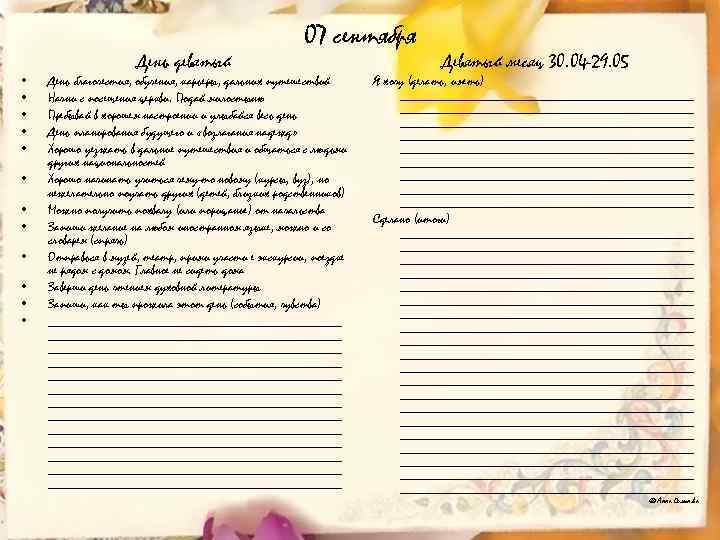 07 сентября
День девятый
• День благочестия, обучения, карьеры, дальних путешествий
• Начни с посещения церкви. Подай милостыню
• Пребывай в хорошем настроении и улыбайся весь день
• День планирования будущего и «возлагания надежд»
• Хорошо уезжать в дальние путешествия и общаться с людьми
других национальностей
• Хорошо начинать учиться чему-то новому (курсы, вуз), но
нежелательно поучать других (детей, близких родственников)
• Можно получить похвалу (или порицание) от начальства
• Запиши желание на любом иностранном языке, можно и со
словарем (страны)
• Отправься в музей, театр, прими участи е экскурсии, поездке
не рядом с домом. Главное не сидеть дома
• Заверши день чтением духовной литературы
• Запиши, как ты прожила этот день (события, чувства)
Девятый месяц 30.04-29.05
Я хочу (делать, иметь)
Сделано (итоги)
© Анна